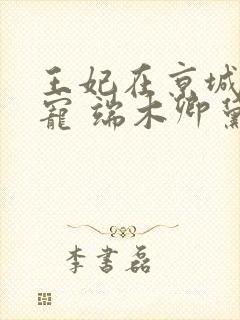 王妃在京城
寵 端木卿黛
李書磊